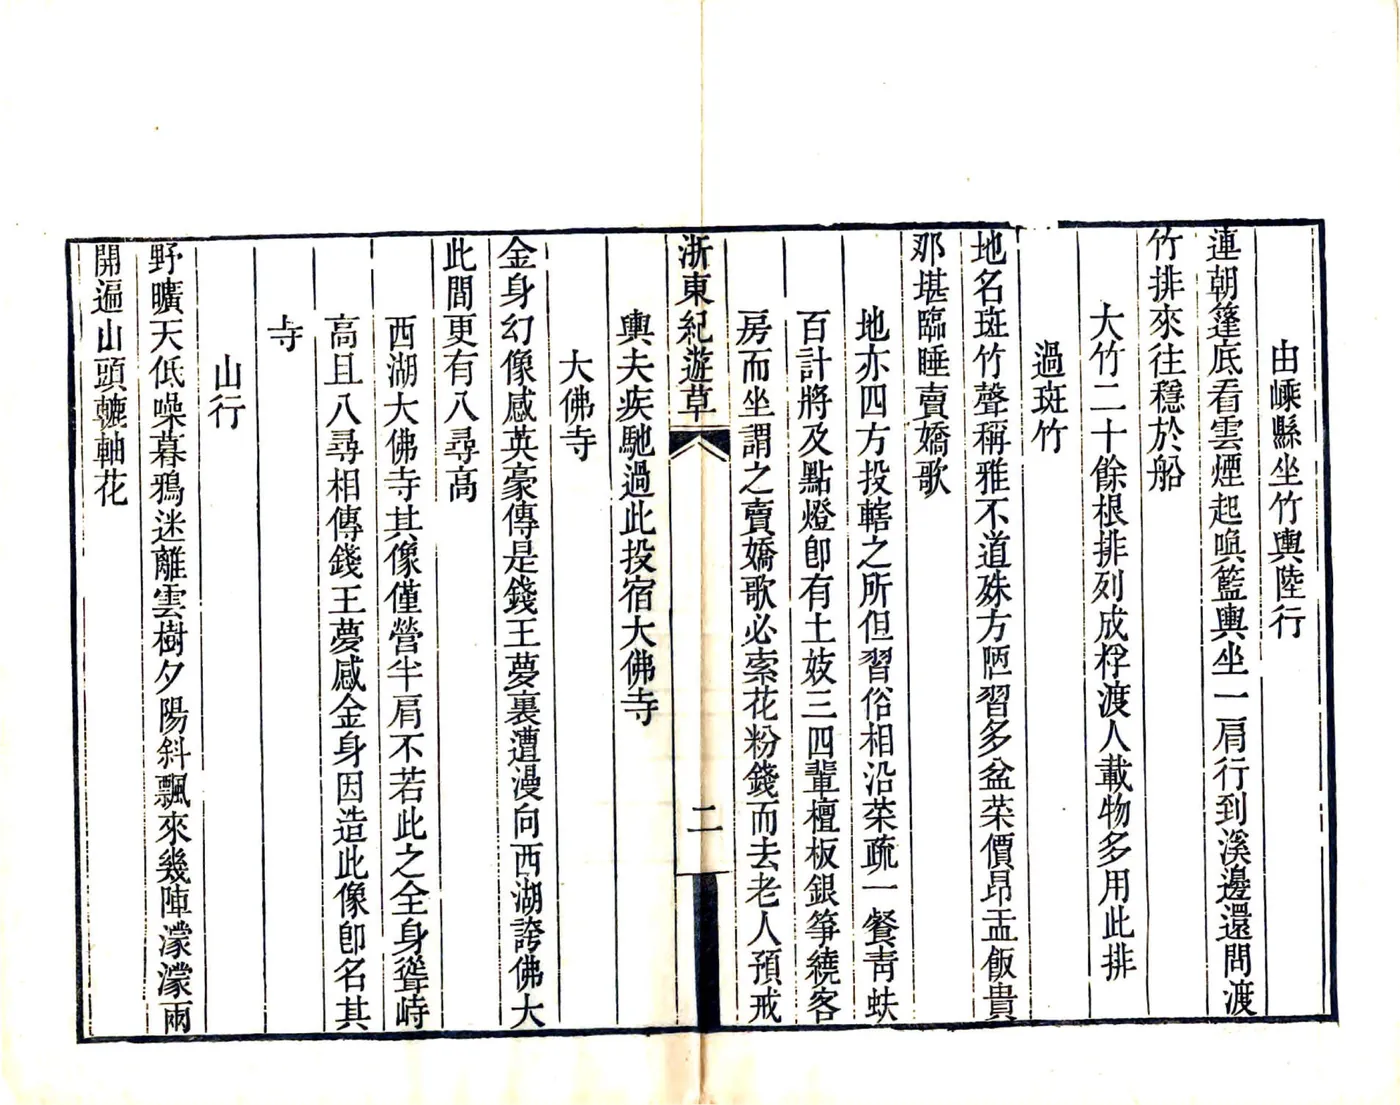 由嵊縣坐竹輿陸行
連朝篷底看雲煙起喚籃輿坐一肩行到溪邊還問渡
竹排來往穩於船
大竹二十餘根排列成桴渡人載物多用此排
過斑竹
地名斑竹聲稱雅不道殊方陋習多盆菜價昂盂飯貴
那堪臨睡賣嬌歌
地亦四方投轄之所但習俗相沿菜疏一餐青蚨
百計將及點燈卽有土妓三四輩檀板銀箏繞客
房而坐謂之賣嬌歌必索花粉錢而去老人預戒
浙東紀遊草
二
輿夫疾馳過此投宿大佛寺
大佛寺
金身幻像感英豪傳是錢王夢裏遭漫向西湖誇佛大
此間更有八尋高
西湖大佛寺其像僅營半肩不若此之全身聳峙
高且八尋相傳錢王夢感金身因造此像卽名其
寺
山行
野曠天低噪暮鴉迷離雲樹夕陽斜飄來幾陣濛濛雨
開遍山頭轆軸花